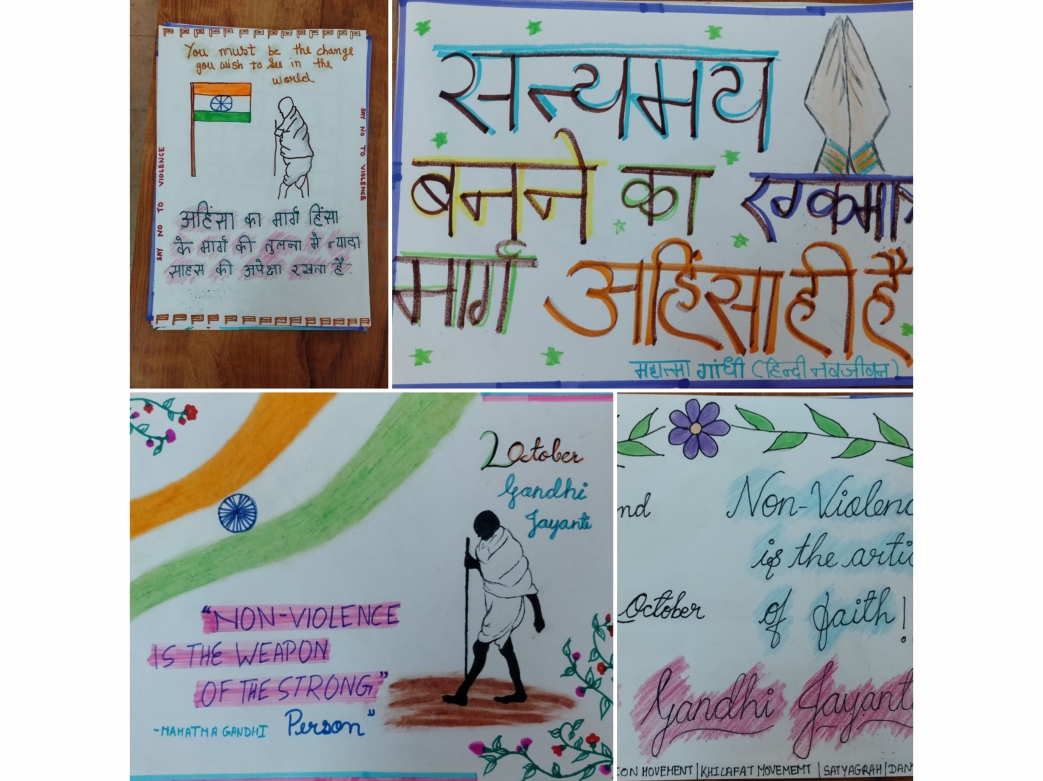 You must be the change
you wish to see in the
world
SAY NO TO VIOLENCE
SAY NO TO VIOLENCE
अहिंसा का मार्ग हिंसा
के मार्ग की तुलना में ज्यादा
साहस की अपेक्षा रखता है
सत्यमय
बनने का एकमात्र
मार्ग अहिंसा ही है
महात्मा गांधी (हिन्दी नवजीवन)
2 October
Gandhi
Jayanti
"NON-VIOLENCE
IS THE WEAPON
OF THE STRONG"
-MAHATMA GANDHI Person"
nd Non-Violenc
is the artic
October of faith!
Gandhi Jayant
ION MOVEMENT | KHILAFAT MOVEMEMT | SATYAGRAH | DAN